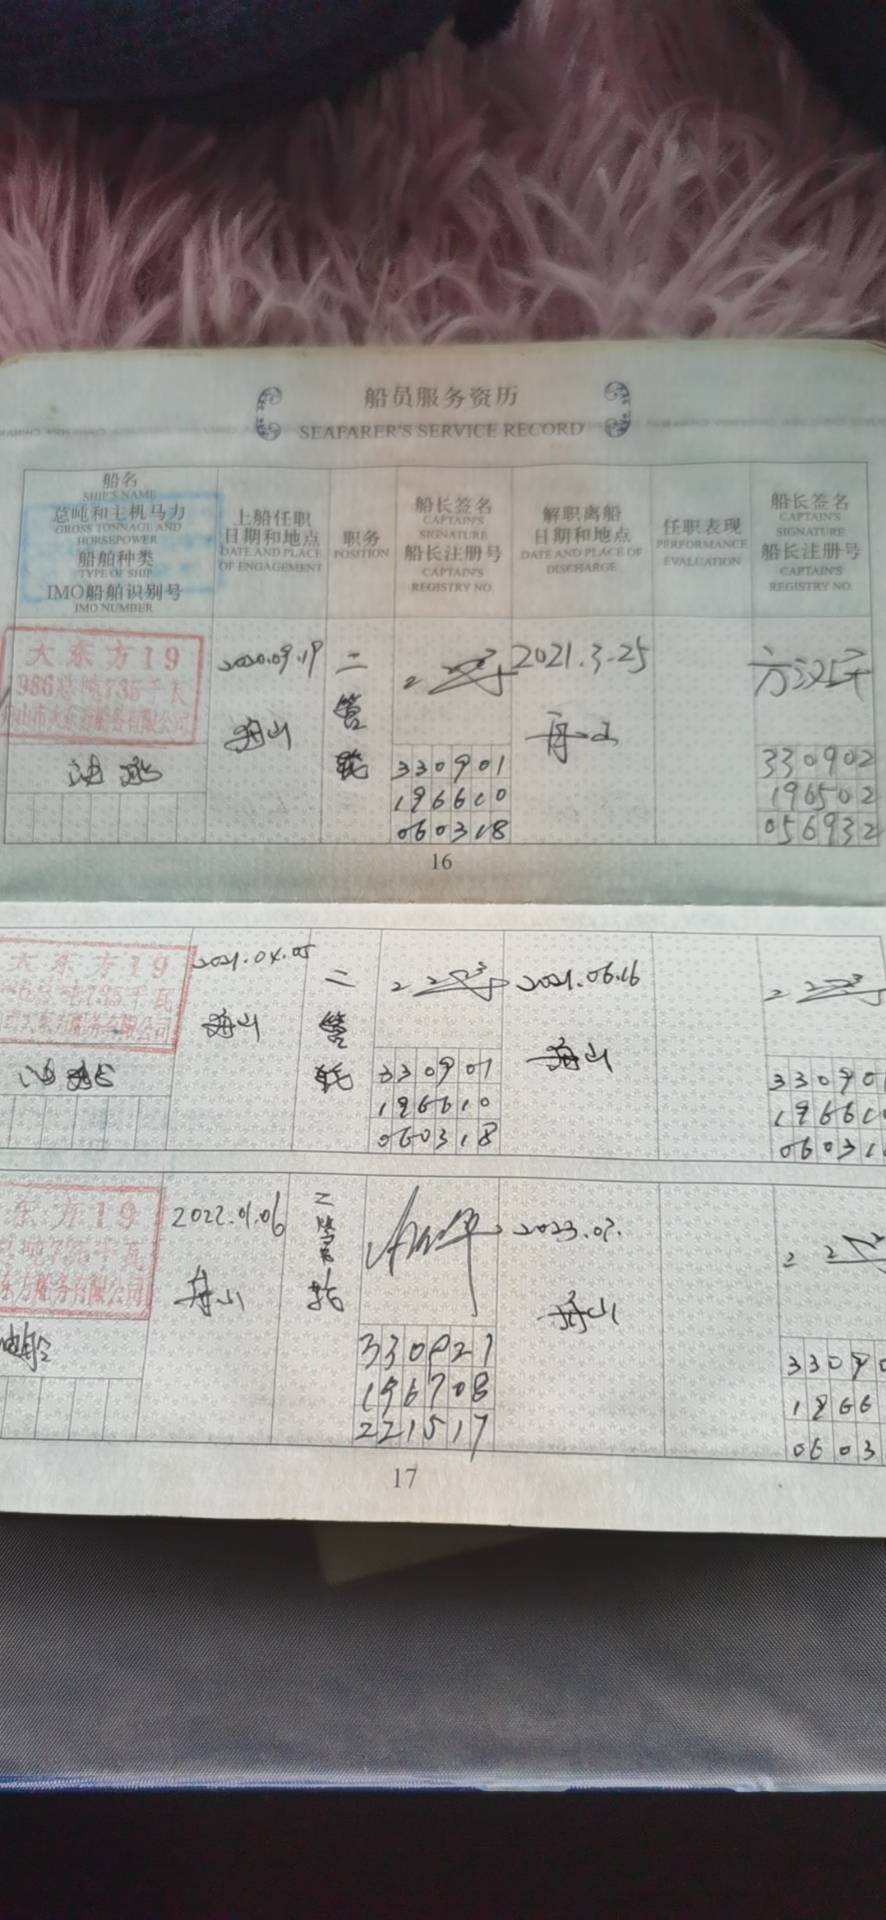 船员服务资历
SEAFARER'S SERVICE RECORD
船名
SHIP'S NAME
总吨和主机马力
GROSS TONNAGE AND
HORSEPOWER
船舶种类
TYPE OF SHIP
IMO船舶识别号
IMO NUMBER
上船任职
日期和地点
DATE AND PLACE
OF ENGAGEMENT
职务
POSITION
船长签名
CAPTAIN'S
SIGNATURE
船长注册号
CAPTAIN'S
REGISTRY NO.
解职离船
日期和地点
DATE AND PLACE OF
DISCHARGE
任职表现
PERFORMANCE
EVALUATION
船长签名
CAPTAIN'S
SIGNATURE
船长注册号
CAPTAIN'S
REGISTRY NO.
大东方19
986总吨735千瓦
舟山市大东方服务有限公司
油船
2020.09.19
舟山
二管轮
330901
196610
060318
2021.3.25
舟山
330902
196502
056932
16
大东方19
总吨735千瓦
大东方服务有限公司
油船
2021.04.05
舟山
二管轮
330901
196610
060318
2021.06.16
舟山
33090
19661
06031
东方19
千瓦
东方服务有限公司
油船
2022.01.06
舟山
二管轮
330921
196708
221517
2023.07.
舟山
3309
1966
0603
17